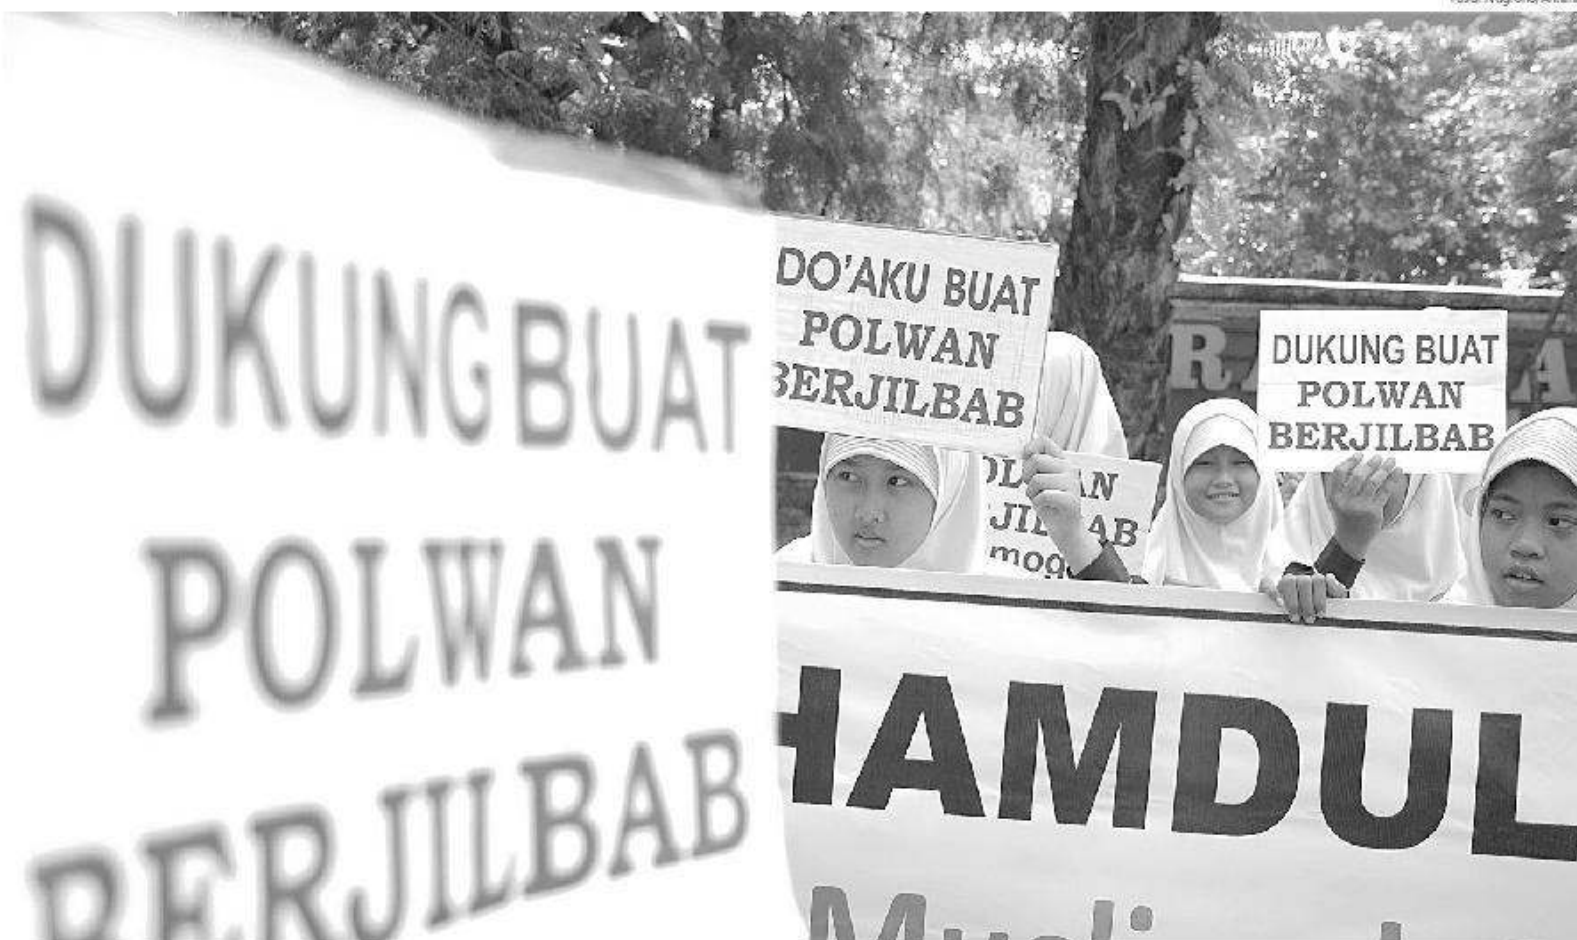 DUKUNG BUAT
POLWAN
BERJILBAB
DO'AKU BUAT
POLWAN
BERJILBAB
DUKUNG BUAT
POLWAN
BERJILBAB
HAMDUL